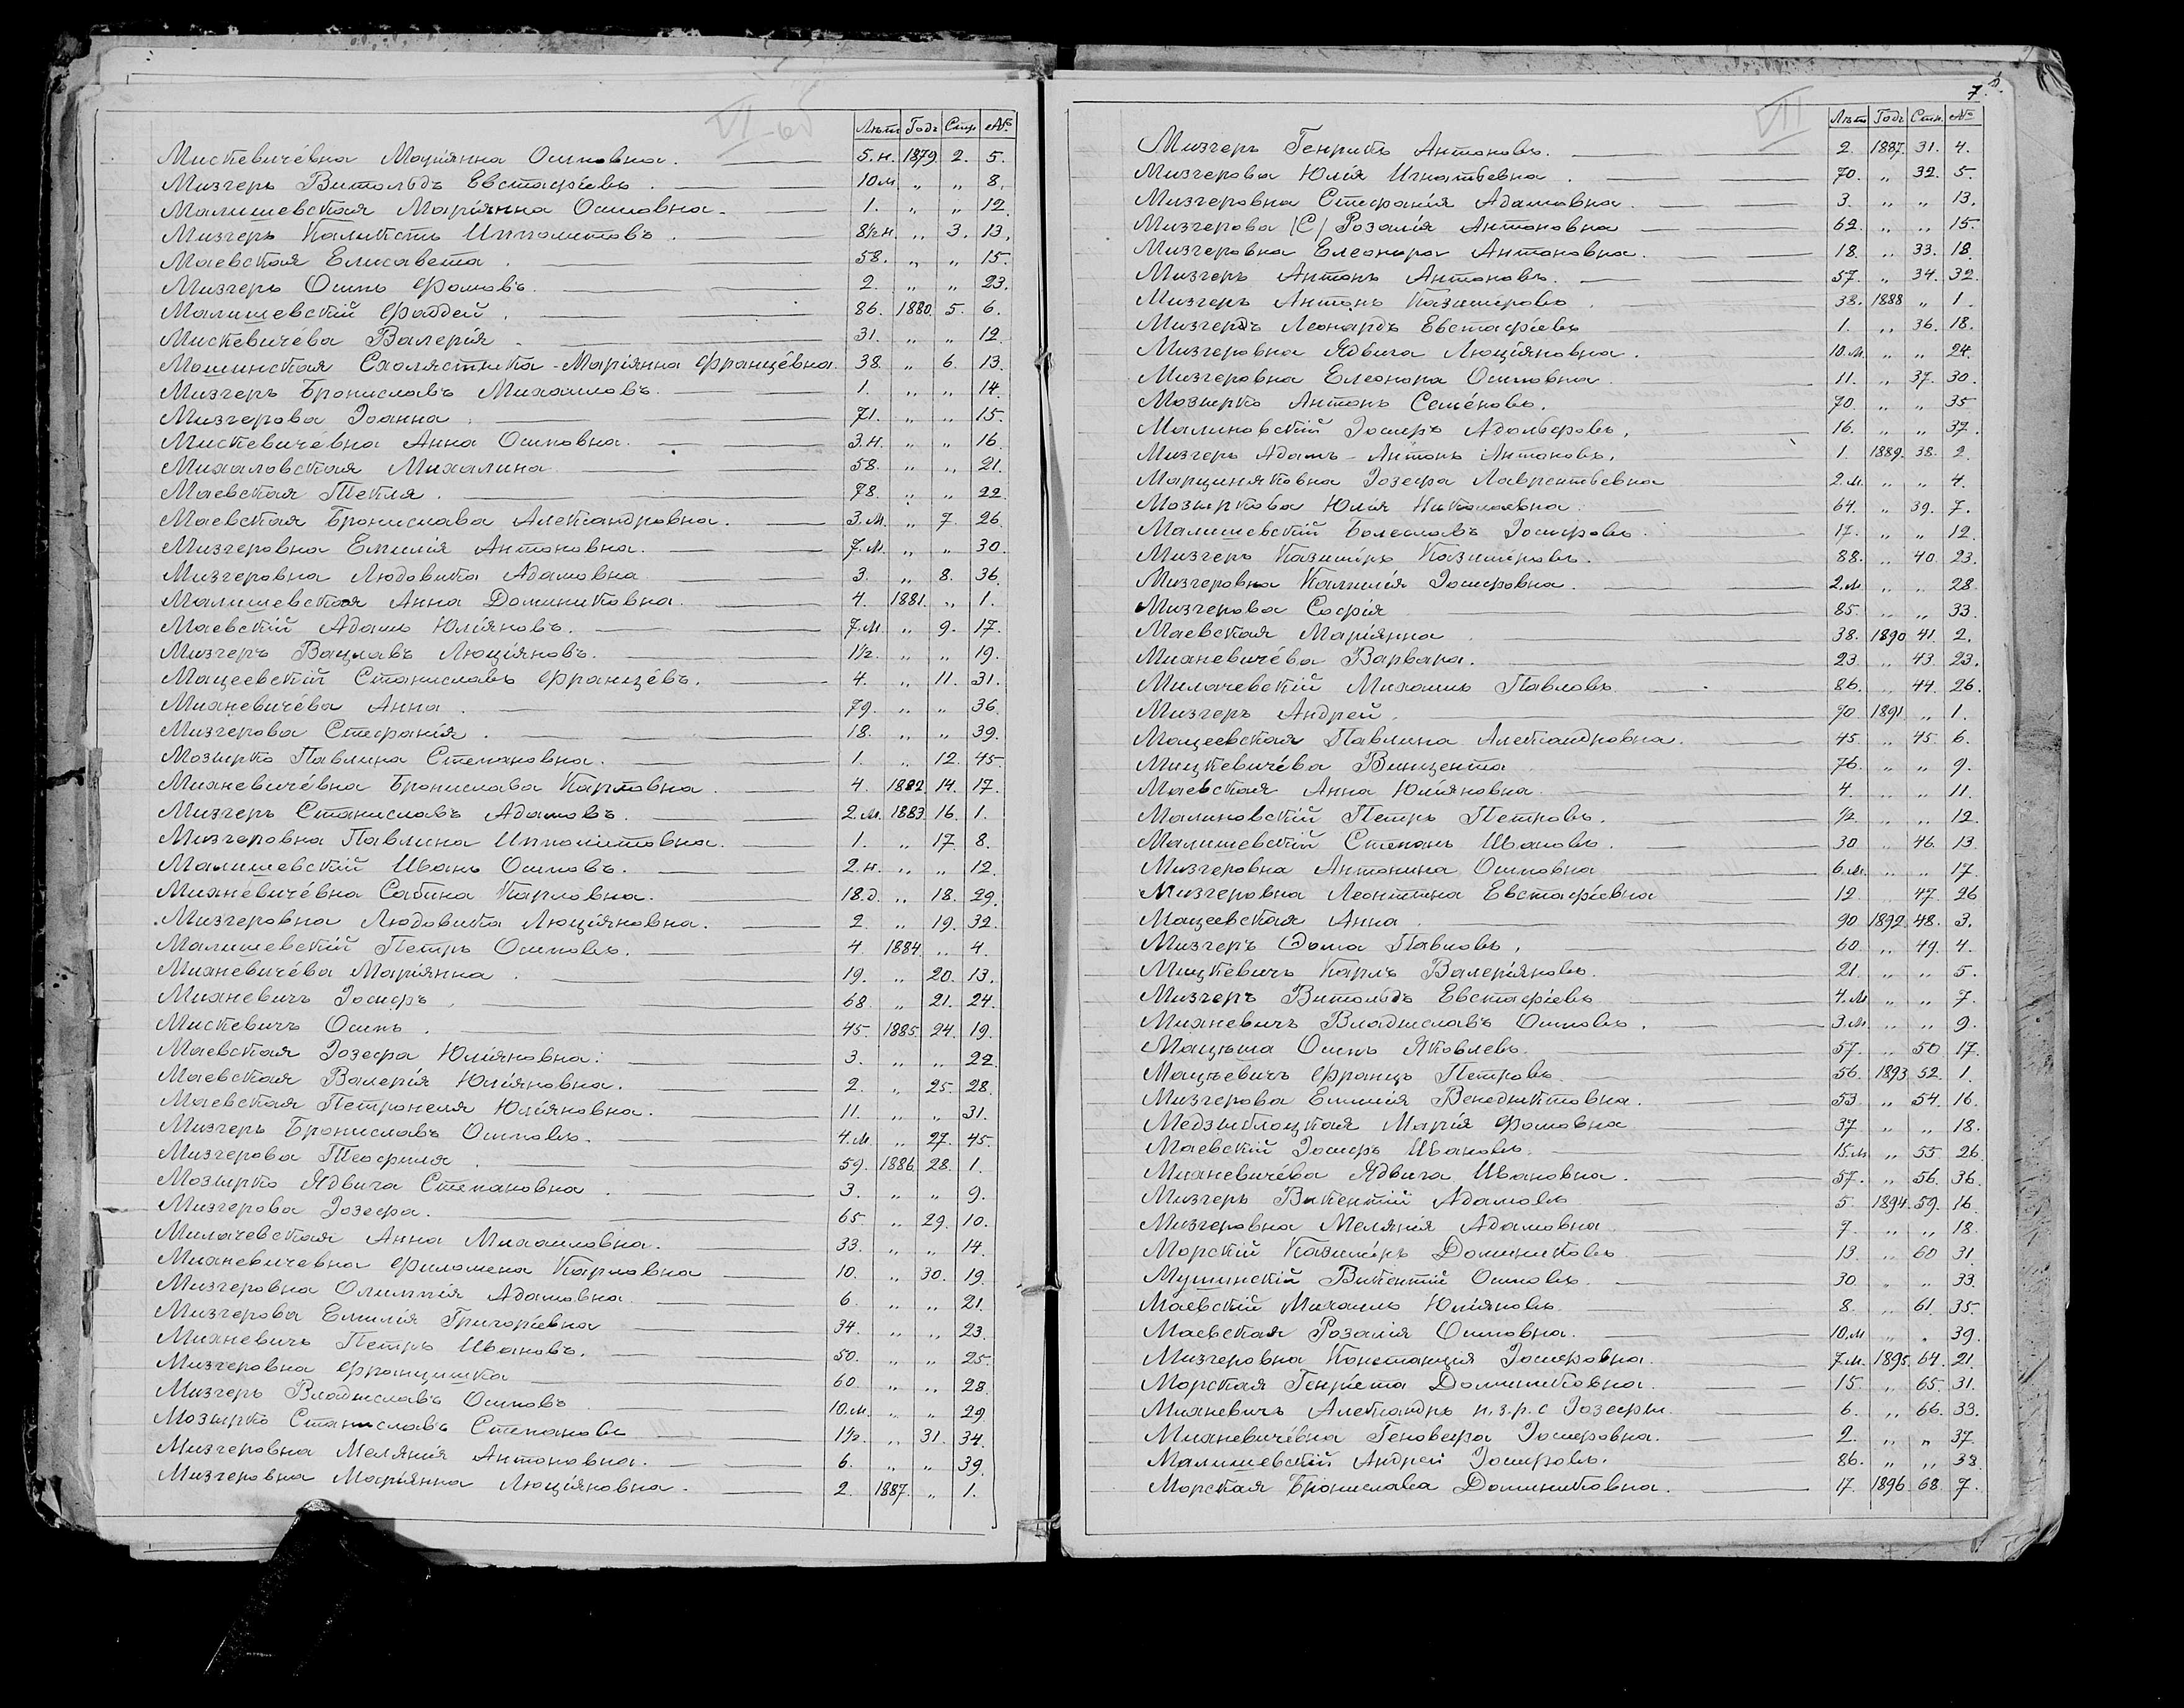 VI-об
Лѣтъ Годъ Стр. №
Мискевиче́вна Марія́нна Осиповна. 5.н. 1879 2. 5.
Мизгеръ Витольдъ Евстафіевъ. 10м. „ „ 8.
Малишевская Марія́нна Осиповна. 1. „ „ 12.
Мизгеръ Каликстъ Ипполитовъ. 8½н. „ 3. 13.
Маевская Елисавета. 58. „ „ 15.
Мизгеръ Осипъ Фомовъ. 2. „ „ 23.
Малишевскій Фаддей. 86. 1880. 5. 6.
Мискевиче́ва Валерія. 31. „ „ 12.
Мошинская Схолястика-Марія́нна Францевна. 38. „ 6. 13.
Мизгеръ Брониславъ Михаиловъ. 1. „ „ 14.
Мизгерова Іоанна. 71. „ „ 15.
Мискевиче́вна Анна Осиповна. 3.н. „ „ 16.
Михаловская Михалина. 58. „ „ 21.
Маевская Текля. 78. „ „ 22.
Маевская Бронислава Александровна. 3.м. „ 7. 26.
Мизгеровна Емилія Антоновна. 7.м. „ „ 30.
Мизгеровна Людовика Адамовна 3. „ 8. 36.
Малишевская Анна Доминиковна. 4. 1881. „ 1.
Маевскій Адамъ Юлія́новъ. 7.м. „ 9. 17.
Мизгеръ Вацлавъ Люція́новъ. 1½. „ „ 19.
Мацеевскій Станиславъ Францевъ. 4. „ 11. 31.
Михневиче́ва Анна. 79. „ „ 36.
Мизгерова Стефанія. 18. „ „ 39.
Мозырко Павлина Степановна. 1. „ 12. 45.
Михневиче́вна Бронислава Карловна. 4. 1882. 14. 17.
Мизгеръ Станиславъ Адамовъ. 2.м. 1883. 16. 1.
Мизгеровна Павлина Ипполитовна. 1. „ 17. 8.
Малишевскій Иванъ Осиповъ. 2.н. „ „ 12.
Михневиче́вна Сабина Карловна. 18.д. „ 18. 29.
Мизгеровна Людовика Люція́новна. 2. „ 19. 32.
Малишевскій Петръ Осиповъ. 4. 1884. „ 4.
Михневиче́ва Марія́нна. 19. „ 20. 13.
Михневичъ Іосифъ. 68. „ 21. 24.
Мискевичъ Осипъ. 45. 1885. 24. 19.
Маевская Іозефа Юлія́новна. 3. „ „ 22.
Маевская Валерія Юлія́новна. 2. „ 25. 28.
Маевская Петронеля Юлія́новна. 11. „ „ 31.
Мизгеръ Брониславъ Осиповъ. 4.м. „ 27. 45.
Мизгерова Теофиля. 59. 1886. 28. 1.
Мозырко Ядвига Степановна. 3. „ „ 9.
Мизгерова Іозефа. 65. „ 29. 10.
Милачевская Анна Михаиловна. 33. „ „ 14.
Михневичевна Филомена Карловна 10. „ 30. 19.
Мизгеровна Олимпія Адамовна 6. „ „ 21.
Мизгерова Емилія Григоріевна 34. „ „ 23.
Михневичъ Петръ Ивановъ. 50. „ „ 25.
Мизгеровна Францишка 60. „ „ 28.
Мизгеръ Владиславъ Осиповъ 10.м. „ „ 29.
Мозырко Станиславъ Степановъ 1½. „ 31. 34.
Мизгеровна Меланія Антоновна. 6. „ „ 39.
Мизгеровна Марія́нна Люція́новна. 2. 1887. „ 1.
VII
7
Лѣтъ Годъ Стр. №
Мизгеръ Генрикъ Антоновъ. 2. 1887. 31. 4.
Мизгерова Юлія Игнатьевна. 70. „ 32. 5.
Мизгеровна Стефанія Адамовна. 3. „ „ 13.
Мизгерова /С/ Розалія Антоновна 62. „ „ 15.
Мизгеровна Елеонора Антоновна. 18. „ 33. 18.
Мизгеръ Антонъ Антоновъ. 57. „ 34. 32.
Мизгеръ Антонъ Казимеровъ. 38. 1888 „ 1.
Мизгеръ Леонардъ Евстафіевъ 1. „ 36. 18.
Мизгеровна Ядвига Люція́новна. 10.м. „ „ 24.
Мизгеровна Елеонора Осиповна. 11. „ 37. 30.
Мозырко Антонъ Семёновъ. 70. „ „ 35
Малиновскій Іосифъ Адольфовъ. 16. „ „ 37.
Мизгеръ Адамъ-Антонъ Антоновъ. 1. 1889. 38. 2
Марциняковна Іозефа Лаврентьевна 2.м. „ „ 4.
Мозыркова Юлія Николаевна. 64. „ 39. 7.
Малишевскій Болеславъ Іосифовъ. 17. „ „ 12.
Мизгеръ Казиміръ Казиміровъ. 88. „ 40. 23.
Мизгеровна Камилія Іосифовна. 2.м. „ „ 28.
Мизгерова Софія 85. „ „ 33.
Маевская Марія́нна. 38. 1890 41. 2.
Михневиче́ва Варвара. 23. „ 43. 23.
Милачевскій Михаилъ Павловъ. 86. „ 44. 26.
Мизгеръ Андрей. 70. 1891. „ 1.
Мацеевская Павлина Александровна. 45. „ 45. 6.
Мицкевиче́ва Винцента 76. „ „ 9.
Маевская Анна Юлія́новна. 4. „ „ 11.
Малиновскій Петръ Петровъ. ½. „ „ 12.
Малишевскій Степанъ Ивановъ. 30 „ 46. 13.
Мизгеровна Антонина Осиповна 6.м. „ „ 17.
Мизгеровна Леонтина Евстафіевна 12 „ 47. 26
Мацеевская Анна. 90 1892. 48. 3.
Мизгеръ Ѳома Павловъ. 60. „ 49. 4.
Мицкевичъ Карлъ Валерія́новъ. 21. „ „ 5.
Мизгеръ Витольдъ Евстафіевъ 4.м. „ „ 7.
Михневичъ Владиславъ Осиповъ. 3.м. „ „ 9.
Осипъ Яковлевъ. 57. „ 50. 17.
Мацкевичъ Францъ Петровъ. 56. 1893 52. 1.
Мизгерова Емилія Венедиктовна. 53. „ 54. 16.
Медзиблоцкая Марія Фомовна 37. „ „ 18.
Маевскій Іосифъ Ивановъ. 15.м. „ 55. 26.
Михневиче́ва Ядвига Ивановна. 57. „ 56. 36.
Мизгеръ Викентій Адамовъ 5. 1894. 59. 16.
Мизгеровна Меланія Адамовна 7. „ „ 18.
Морскій Казиміръ Доминиковъ 13. „ 60 31
Мушинскій Викентій Осиповъ. 30. „ „ 33.
Маевскій Михаилъ Юлія́новъ. 8. „ 61. 35.
Маевская Розалія Осиповна. 10.м „ „ 39.
Мизгеровна Констанція Іосифовна. 7.м. 1895. 64. 21.
Морская Генріета Доминиковна. 15. „ 65. 31.
Михневичъ Александръ н.з.р.с Іозефы. 6. „ 66. 33.
Михневиче́вна Геновефа Іосифовна. 2. „ „ 37.
Малишевскій Андрей Іосифовъ. 86. „ „ 38.
Морская Бронислава Доминиковна. 17. 1896. 68. 7.